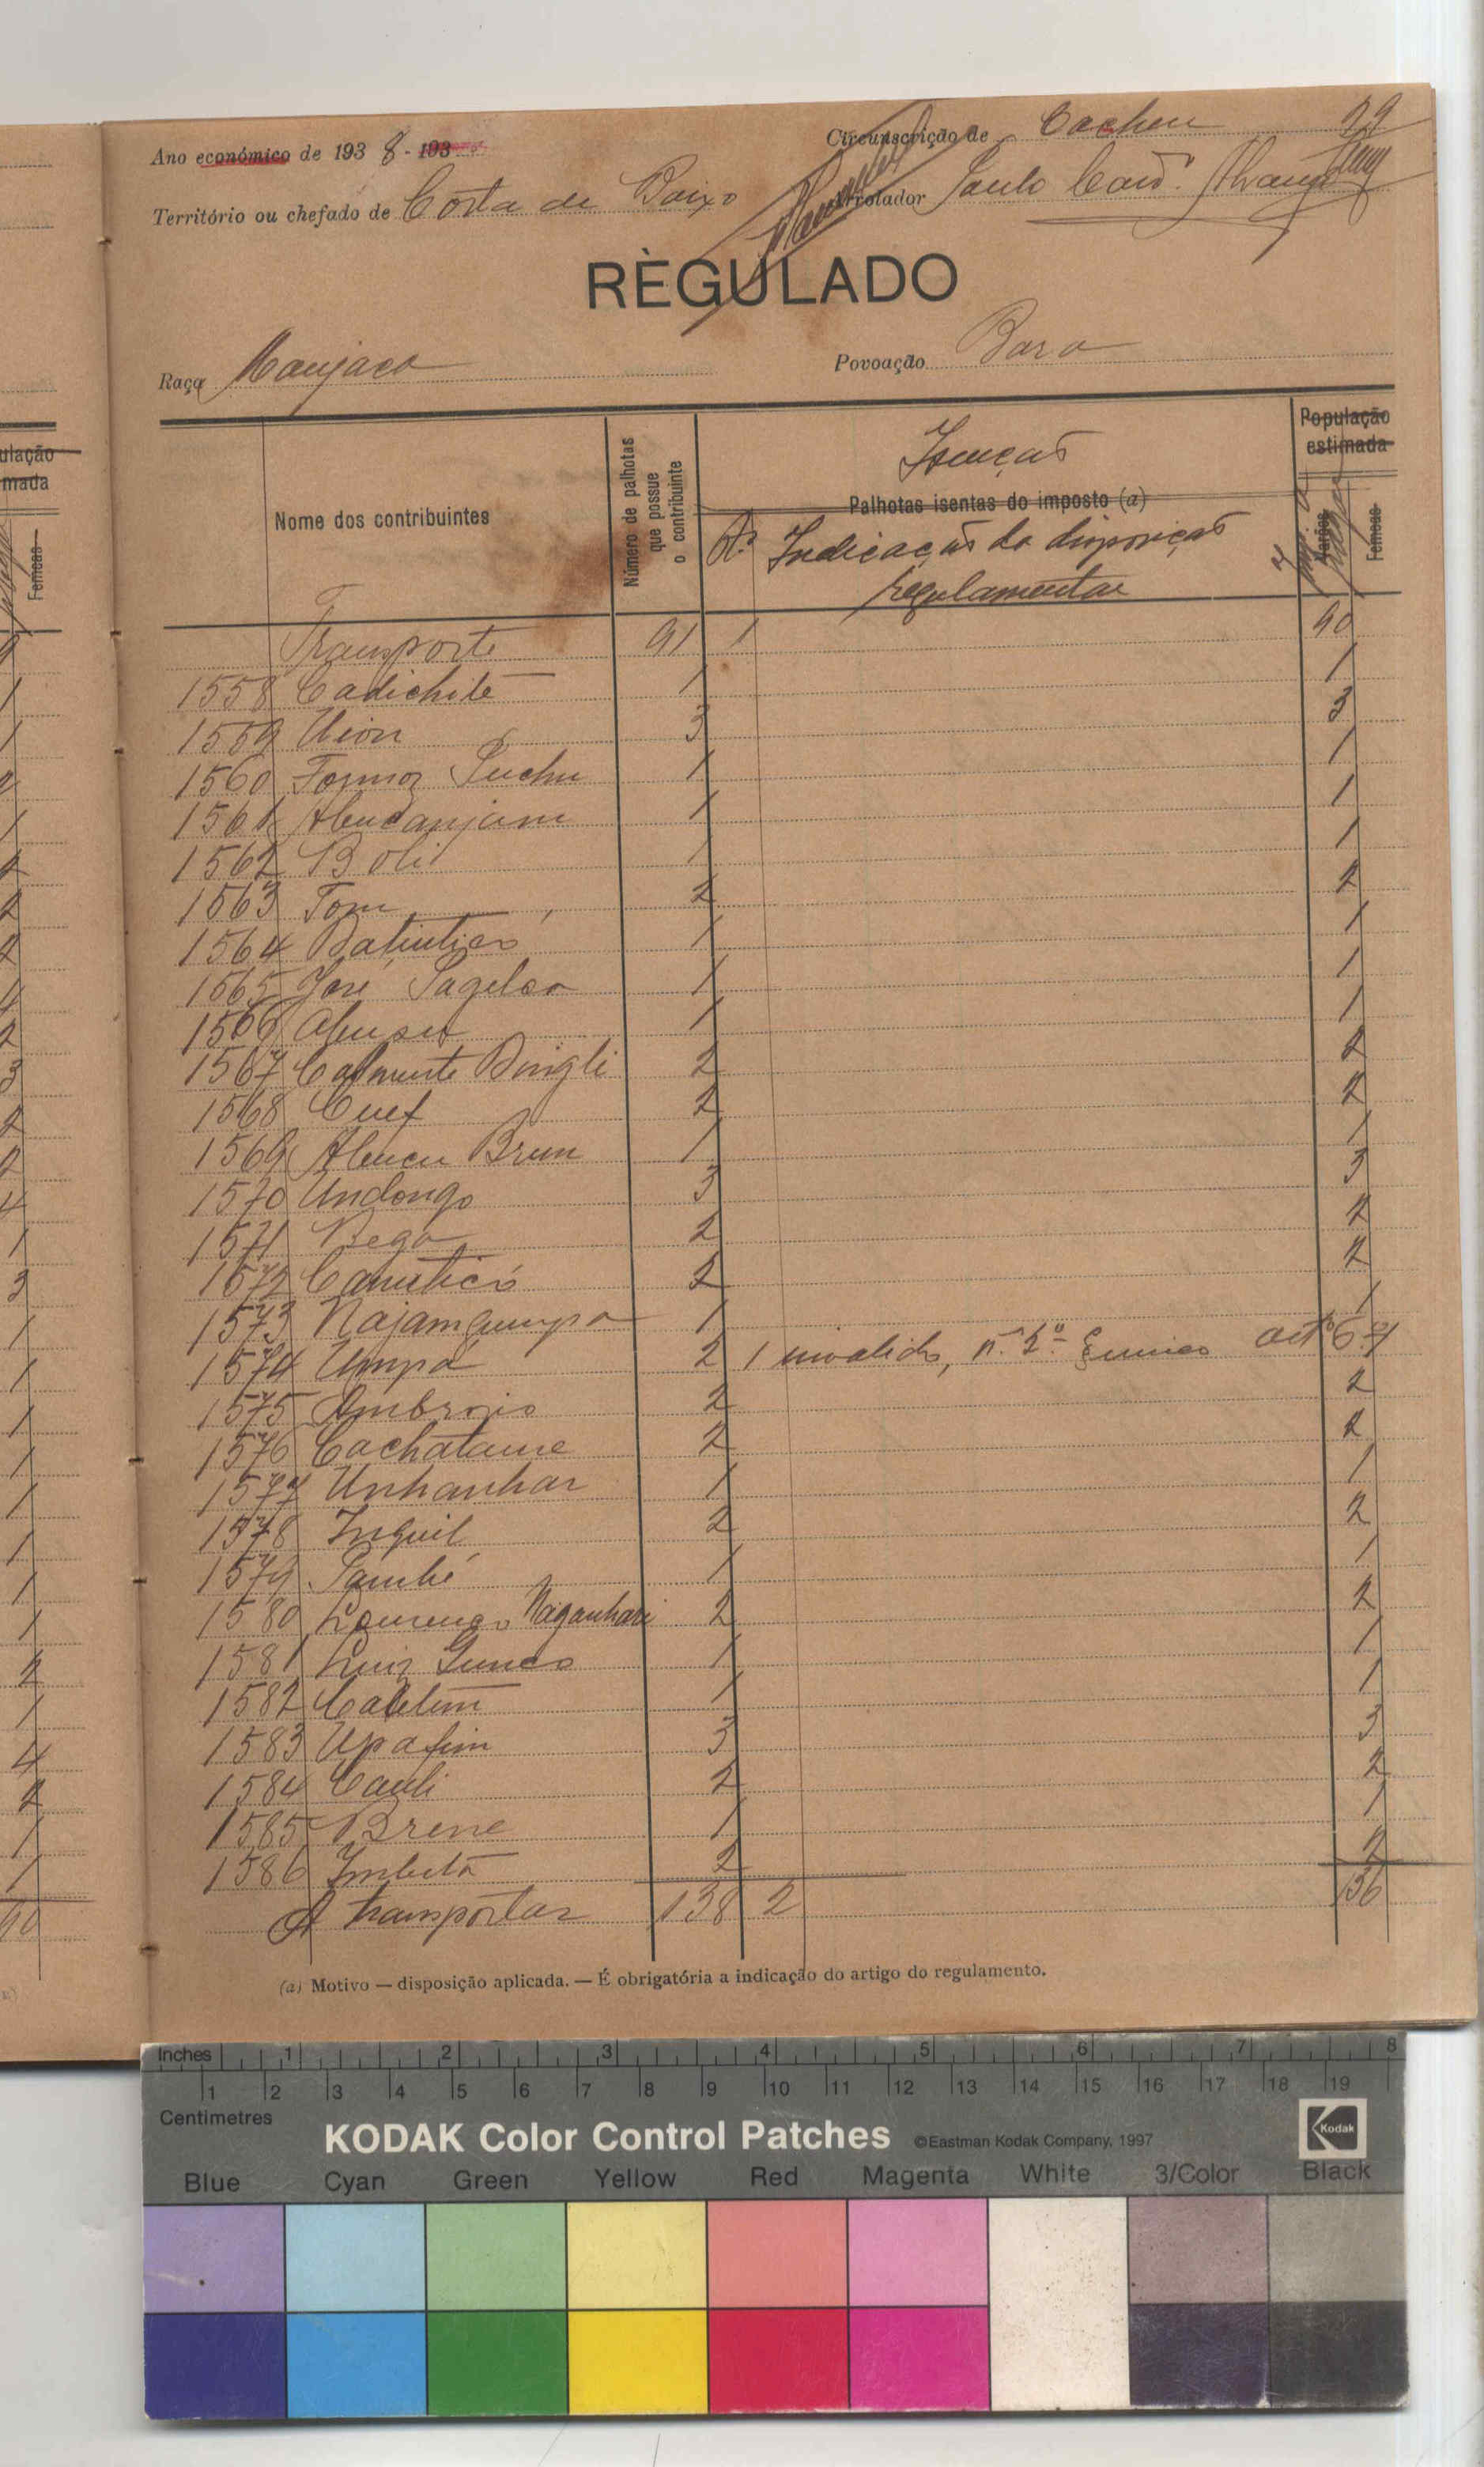 Ano económico de 1938-193
Circunscrição de Cacheu 29
Território ou chefado de Costa de Baixo
Arrolador Paulo
REGULADO
Raça Manjaca
Povoação Bara
Nome dos contribuintes
Número de palhotas que possue o contribuinte
Isenças
Palhotas isentas do imposto (a)
Nº Indicaças da disposiças
regulamentar
População estimada
Varões
Femeas
Transporte 91 1 90
1558 Cadichite 1 1
1559 Uion 3 3
1560 Formoz Puchu 1 1
1561 Abucanjam 1 1
1562 Boli 1 1
1563 Tom 2 2
1564 Batinticó 1 1
1565 José Sagelca 1 1
1566 1 1
1567 Dingli 2 2
1568 Cuef 2 2
1569 Abucu Brun 1 1
1570 Undongo 3 3
1571 Bega 2 2
1572 Canuticó 2 2
1573 Najamqumpa 1 1
1574 Umpá 2 1 invalido, n.º 5º artº 6º 1
1575 Ambrozio 2 2
1576 Cachatame 2 2
1577 Unhanhar 1 1
1578 Inquil 2 2
1579 Sambé 1 1
1580 Lourenço Naganhari 2 2
1581 Luiz Gumes 1 1
1582 1 1
1583 Upafim 3 3
1584 Cauli 2 2
1585 Brene 1 1
1586 Imbutã 2 2
A transportar 138 2 136
(a) Motivo — disposição aplicada. — É obrigatória a indicação do artigo do regulamento.
ulação
mada
Femeas
Inches 1 2 3 4 5 6 7 8
1 2 3 4 5 6 7 8 9 10 11 12 13 14 15 16 17 18 19
Centimetres
KODAK Color Control Patches ©Eastman Kodak Company, 1997 Kodak
Blue Cyan Green Yellow Red Magenta White 3/Color Black